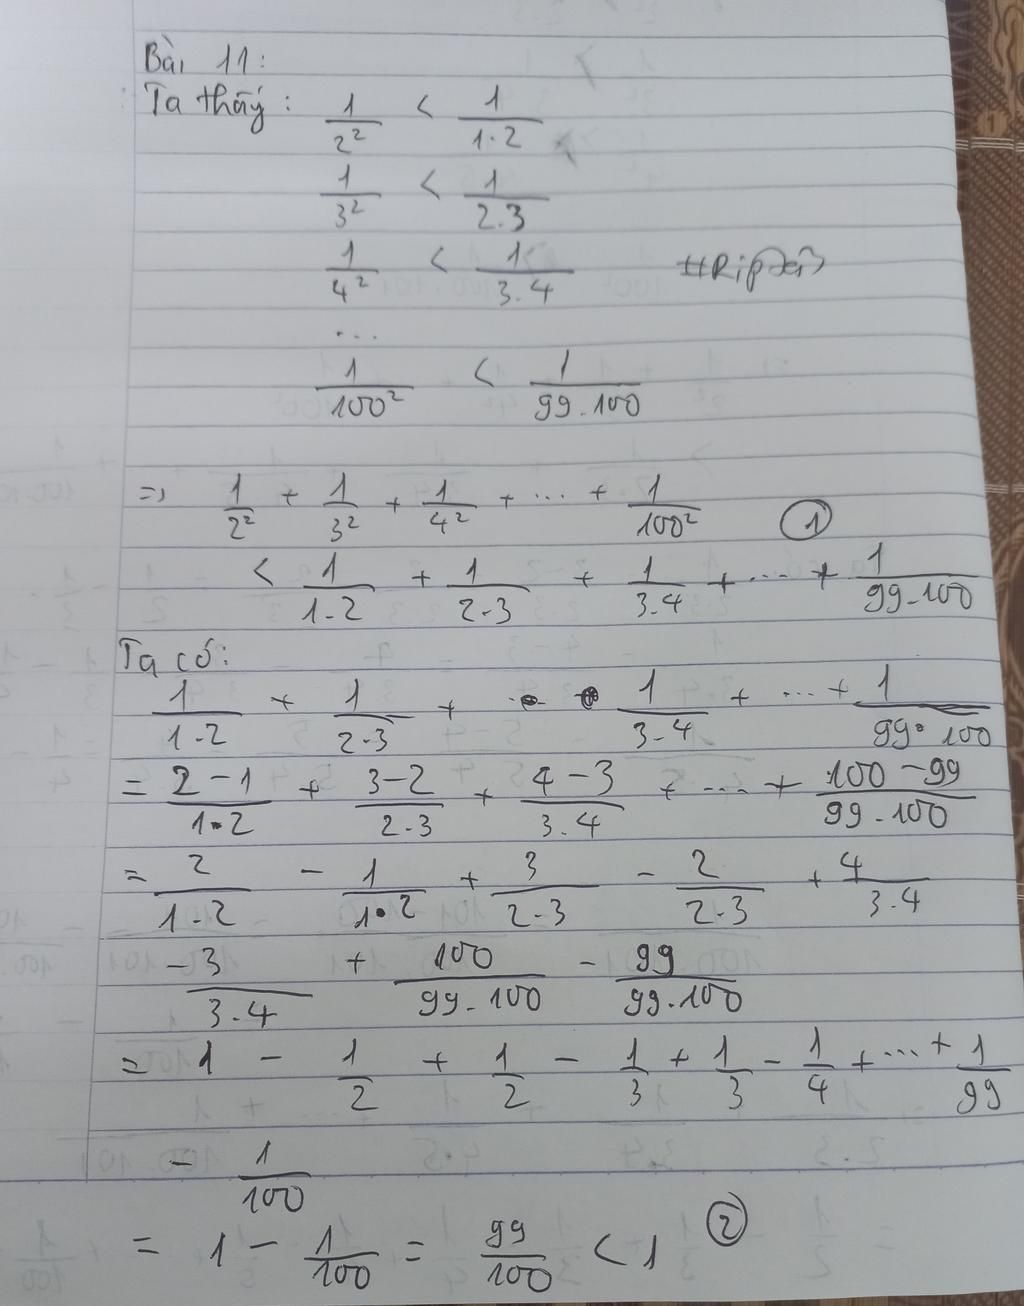 Bài 11:
Ta thấy: 1/2² < 1/1.2
1/3² < 1/2.3
1/4² < 1/3.4
...
1/100² < 1/99.100
=> 1/2² + 1/3² + 1/4² + ... + 1/100² ①
< 1/1.2 + 1/2.3 + 1/3.4 + ... + 1/99.100
Ta có:
1/1.2 + 1/2.3 + 1/3.4 + ... + 1/99.100
= 2-1/1.2 + 3-2/2.3 + 4-3/3.4 + ... + 100-99/99.100
= 2/1.2 - 1/1.2 + 3/2.3 - 2/2.3 + 4/3.4
- 3/3.4 + 100/99.100 - 99/99.100
= 1 - 1/2 + 1/2 - 1/3 + 1/3 - 1/4 + ... + 1/99
- 1/100
= 1 - 1/100 = 99/100 < 1 ②